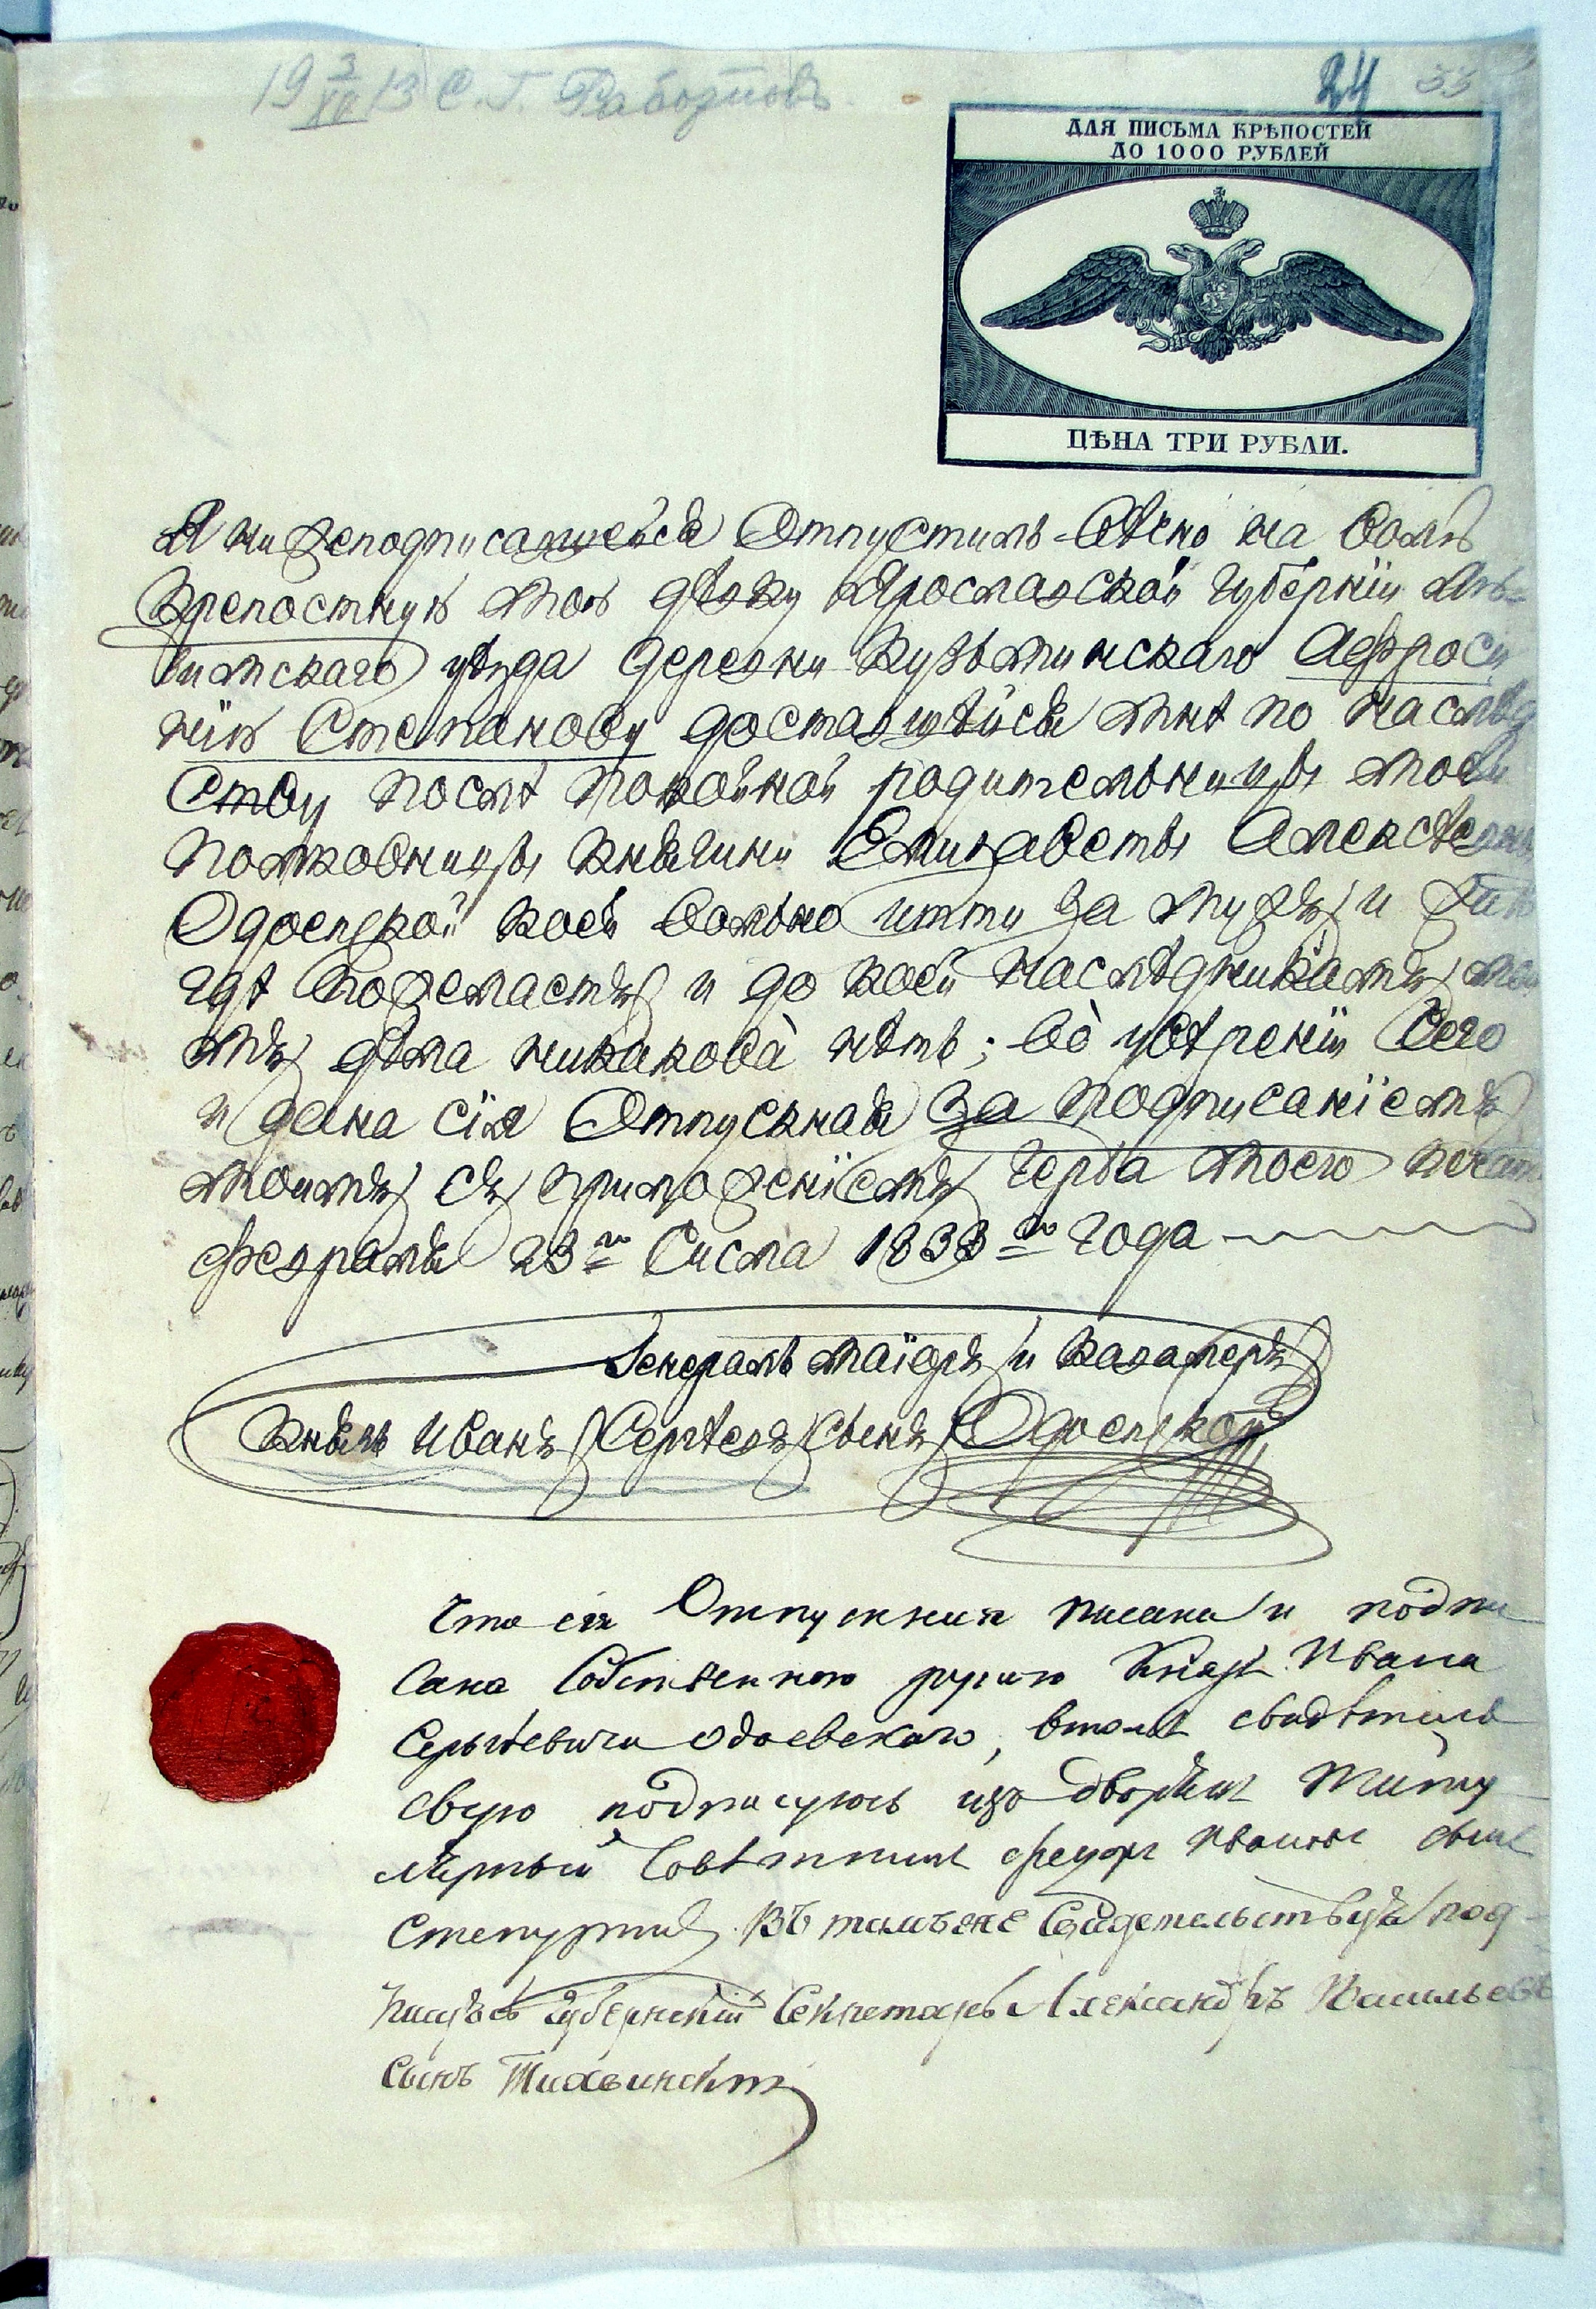 19 3/XII 13 С. Г. Работновъ
24 33
ДЛЯ ПИСЬМА КРѢПОСТЕЙ
ДО 1000 РУБЛЕЙ
ЦѢНА ТРИ РУБЛИ.
Я нижеподписавшейся Отпустилъ Вѣчно на Волю
Крепостную мою дѣвку Ярославской Губернїи Лю-
бимскаго уѣзда деревни Кузьминскаго Афроси
нїю Степанову доставшѣйся мнѣ по наслѣд
ству послѣ покойной родительницы моей
полковницы Княгини Елизаветы Алексѣевны
Одоевской коей Вольно итти за мужъ и жить
гдѣ пожелаетъ и до коей наслѣдникамъ мои
мъ дѣла никакова нѣтъ; Во увѣренїи Сего
и дана сїя Отпускная За подписанїемъ
моимъ съ приложенїемъ Герба моего печати
февраля 23го Числа 1833го года
Генералъ маїоръ и Кавалеръ
Князь Иванъ Сергѣевъ сынъ Одоевской
Что сія Отпускная писана и подпи
сана Собственною рукою Князя Ивана
Сергѣевича Одоевскаго, втомъ свидѣтель
свую подписуюсь изъ дворянъ Титу
лярный Совѣтникъ Ивановъ сынъ
Въ томъ же Свидетельствуя под-
писуюсь Губернскій Секретарь Александръ Васильевъ
Сынъ